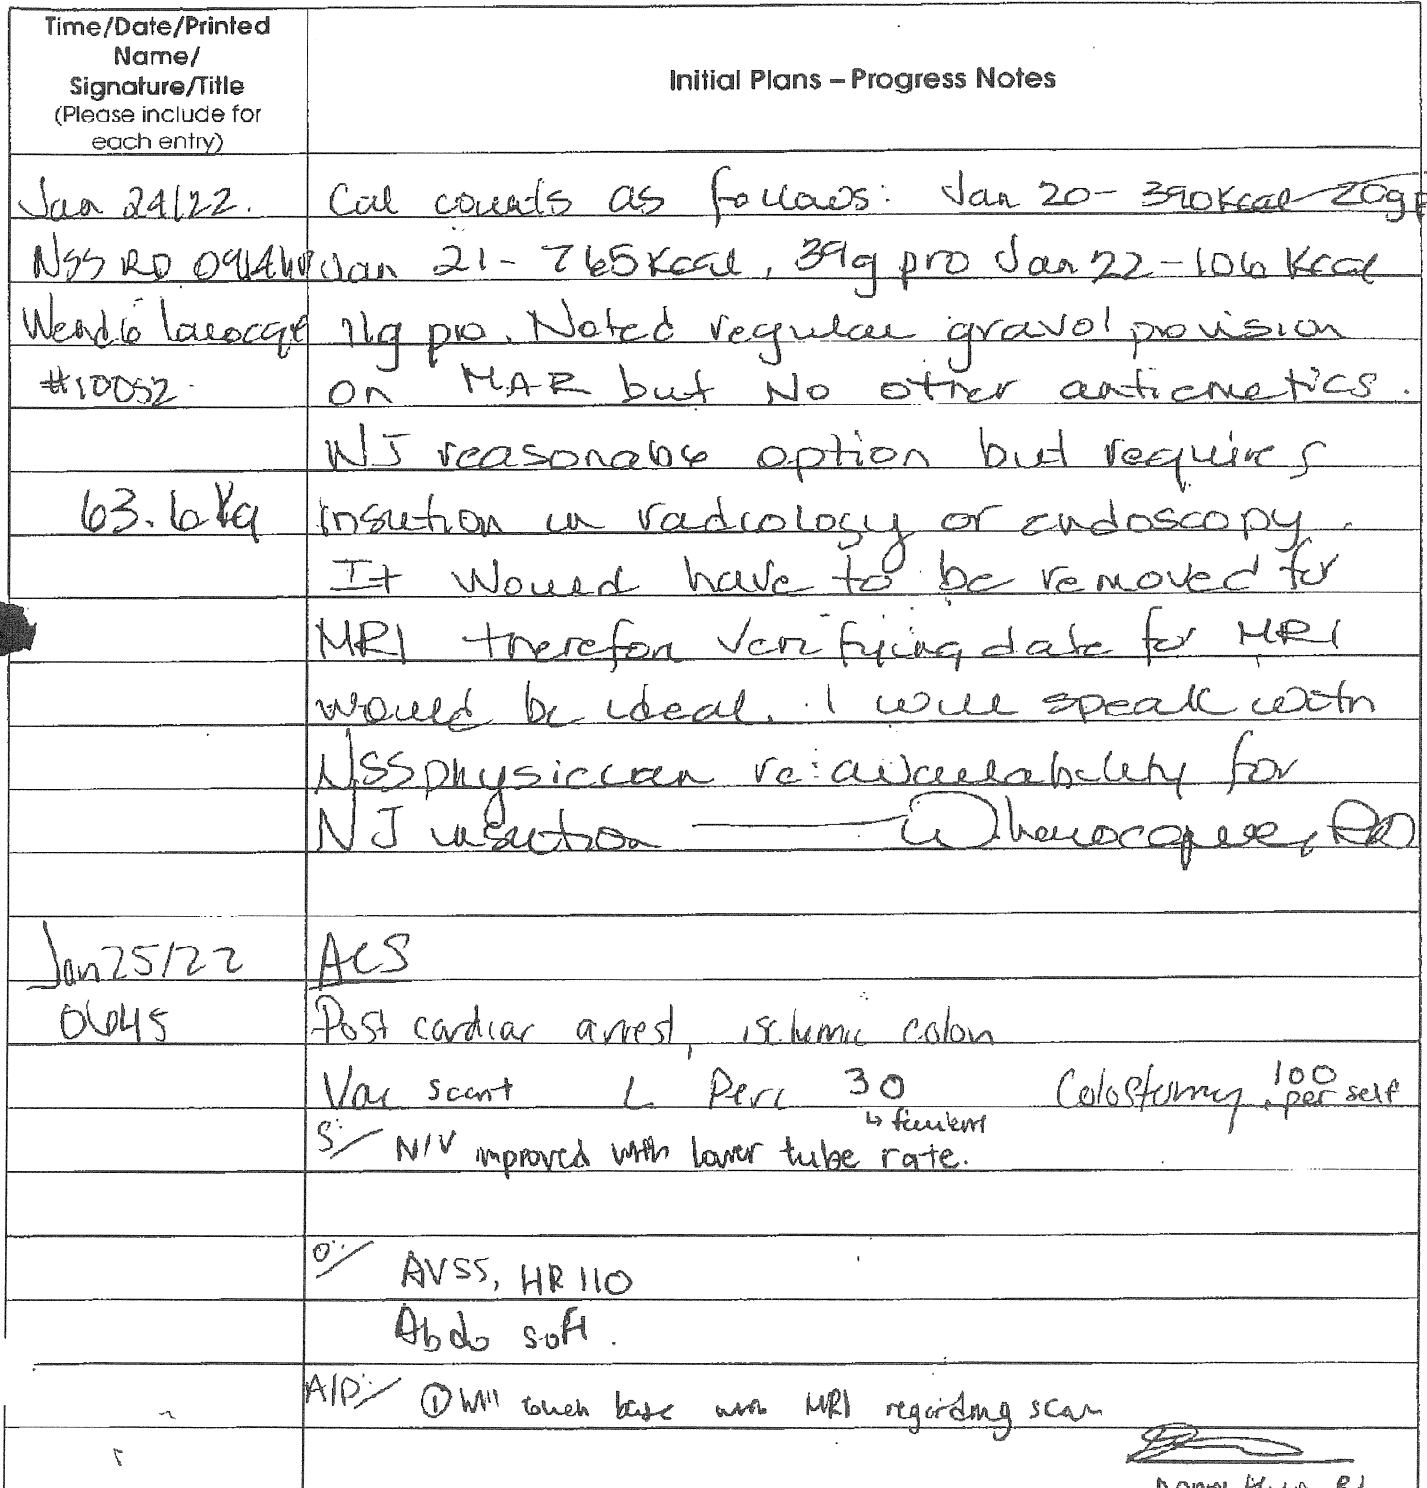 Time/Date/Printed
Name/
Signature/Title
(Please include for
each entry)
Initial Plans – Progress Notes
Jan 24/22. Cal counts as follows: Jan 20 - 390 Kcal 20g
NSS RD Jan 21 - 765 Kcal, 39g pro Jan 22 - 106 Kcal
11g pro. Noted regular gravol provision
#10052. on MAR but No other antiemetics.
NJ reasonable option but requires
63.6 Kg insertion in radiology or endoscopy.
It would have to be removed for
MRI therefore verifying date for MRI
would be ideal. I will speak with
NSS physician re: availability for
NJ insertion RD
Jan 25/22 ACS
0645 Post cardiac arrest, ischemic colon
Vac scant L Perc 30 Colostomy 100 per self
S:/ N/V improved with lower tube rate.
O:/ AVSS, HR 110
Abdo soft.
A/P:/ ① Will touch base with MRI regarding scan